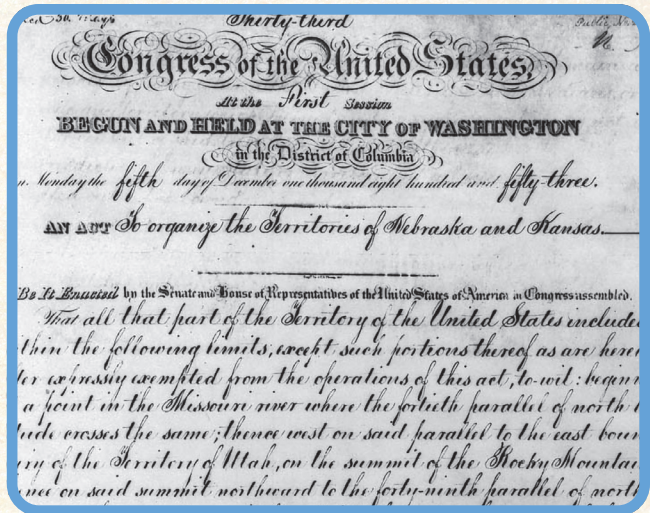 Thirty-third
Congress of the United States,
At the First Session
BEGUN AND HELD AT THE CITY OF WASHINGTON
in the District of Columbia
n Monday the fifth day of December one thousand eight hundred and fifty-three.
AN ACT To organize the Territories of Nebraska and Kansas.
Be It Enacted by the Senate and House of Representatives of the United States of America in Congress assembled,
That all that part of the Territory of the United States include
thin the following limits, except such portions thereof as are here
ter expressly exempted from the operations of this act, to-wit: beginn
a point in the Missouri river where the fortieth parallel of north
tude crosses the same; thence west on said parallel to the east boun
ry of the Territory of Utah, on the summit of the Rocky Mountai
nce on said summit northward to the forty-ninth parallel of north